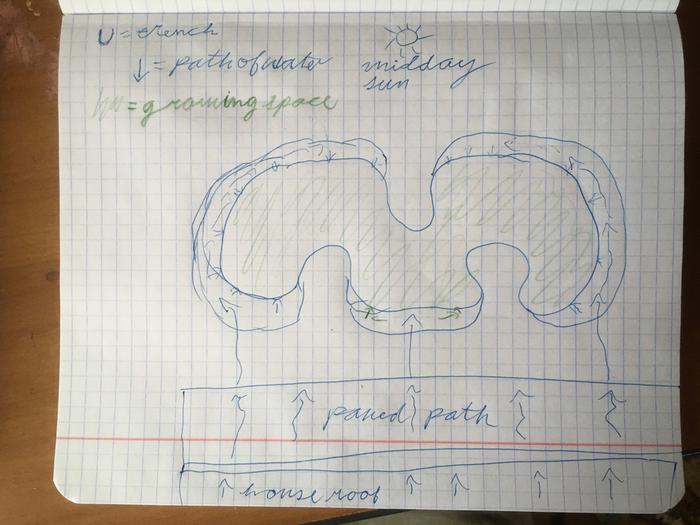 U = trench
↓ = path of water
midday
sun
= growing space
paved path
house roof